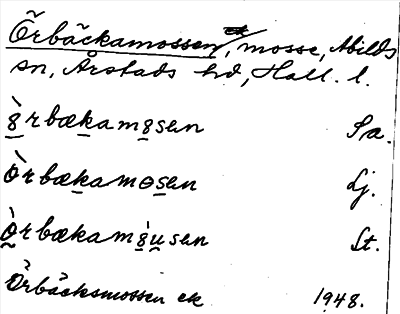 Örbäckamossen, mosse, Abilds
sn, Årstads hd, Hall. l.
ὸ̱rbæḵamo̱sen Sa.
òrbæḵamɵs̱en Lj.
ò̰rbæḵamò̱u̱sen St.
Örbäcksmossen ek 1948.